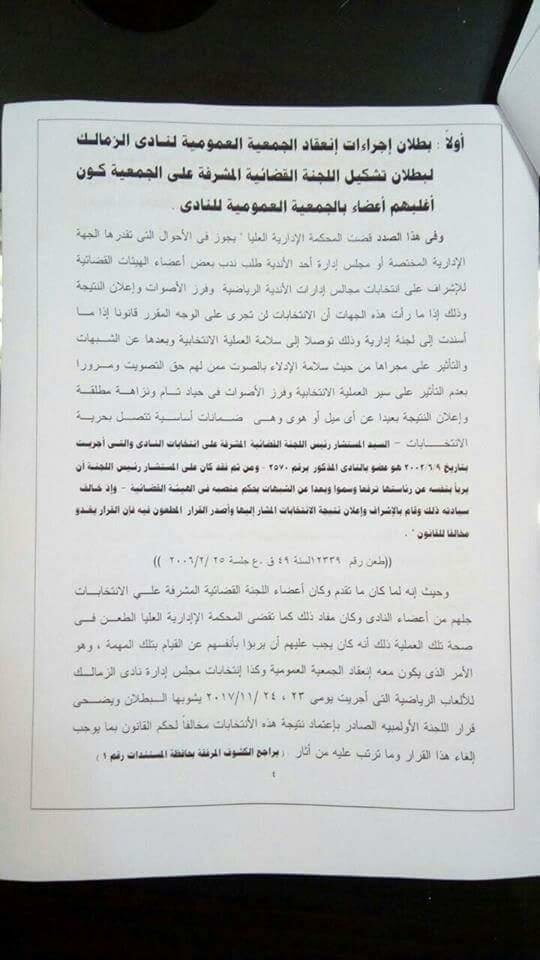 أولاً : بطلان إجراءات إنعقاد الجمعية العمومية لنادى الزمالك
لبطلان تشكيل اللجنة القضائية المشرفة على الجمعية كون
أغلبهم أعضاء بالجمعية العمومية للنادى .
وفى هذا الصدد قضت المحكمة الإدارية العليا " يجوز فى الأحوال التى تقدرها الجهة
الإدارية المختصة أو مجلس إدارة أحد الأندية طلب ندب بعض أعضاء الهيئات القضائية
للإشراف على انتخابات مجالس إدارات الأندية الرياضية وفرز الأصوات وإعلان النتيجة
وذلك إذا ما رأت هذه الجهات أن الانتخابات لن تجرى على الوجه المقرر قانونا إذا ما
أسندت إلى لجنة إدارية وذلك توصلا إلى سلامة العملية الانتخابية وبعدها عن الشبهات
والتأثير على مجراها من حيث سلامة الإدلاء بالصوت ممن لهم حق التصويت ومرورا
بعدم التأثير على سير العملية الانتخابية وفرز الأصوات فى حياد تام ونزاهة مطلقة
وإعلان النتيجة بعيدا عن أى ميل أو هوى وهى ضمانات أساسية تتصل بحرية
الانتخابات – السيد المستشار رئيس اللجنة القضائية المشرفة على انتخابات النادى والتى أجريت
بتاريخ ٢٠٠٢/٦/٩ هو عضو بالنادى المذكور برقم ٢٥٧٠ - ومن ثم فقد كان على المستشار رئيس اللجنة أن
يربأ بنفسه عن رئاستها ترفعا وسموا وبعدا عن الشبهات بحكم منصبه فى الهيئة القضائية – وإذ خالف
سيادته ذلك وقام بالإشراف وإعلان نتيجة الانتخابات المشار إليها وأصدر القرار المطعون فيه فإن القرار يغدو
مخالفا للقانون " .
((طعن رقم ١٢٣٣٩لسنة ٤٩ ق .ع جلسة ٢٥ /٢٠٠٦/٢ ))
وحيث إنه لما كان ما تقدم وكان أعضاء اللجنة القضائية المشرفة علي الانتخابات
جلهم من أعضاء النادى وكان مفاد ذلك كما تقضى المحكمة الإإدارية العليا الطعن فى
صحة تلك العملية ذلك أنه كان يجب عليهم أن يربؤا بأنفسهم عن القيام بتلك المهمة ، وهو
الأمر الذى يكون معه إنعقاد الجمعية العمومية وكذا إنتخابات مجلس إدارة نادى الزمالك
للألعاب الرياضية التى أجريت يومى ٢٣ ، ٢٤ /٢٠١٧/١١ يشوبها البطلان ويضحى
قرار اللجنة الأولمبيه الصادر بإعتماد نتيجة هذه الأنتخابات مخالفاً لحكم القانون بما يوجب
إلغاء هذا القرار وما ترتب عليه من أثار . ( يراجع الكشوف المرفقة بحافظة المستندات رقم ١ )
٤